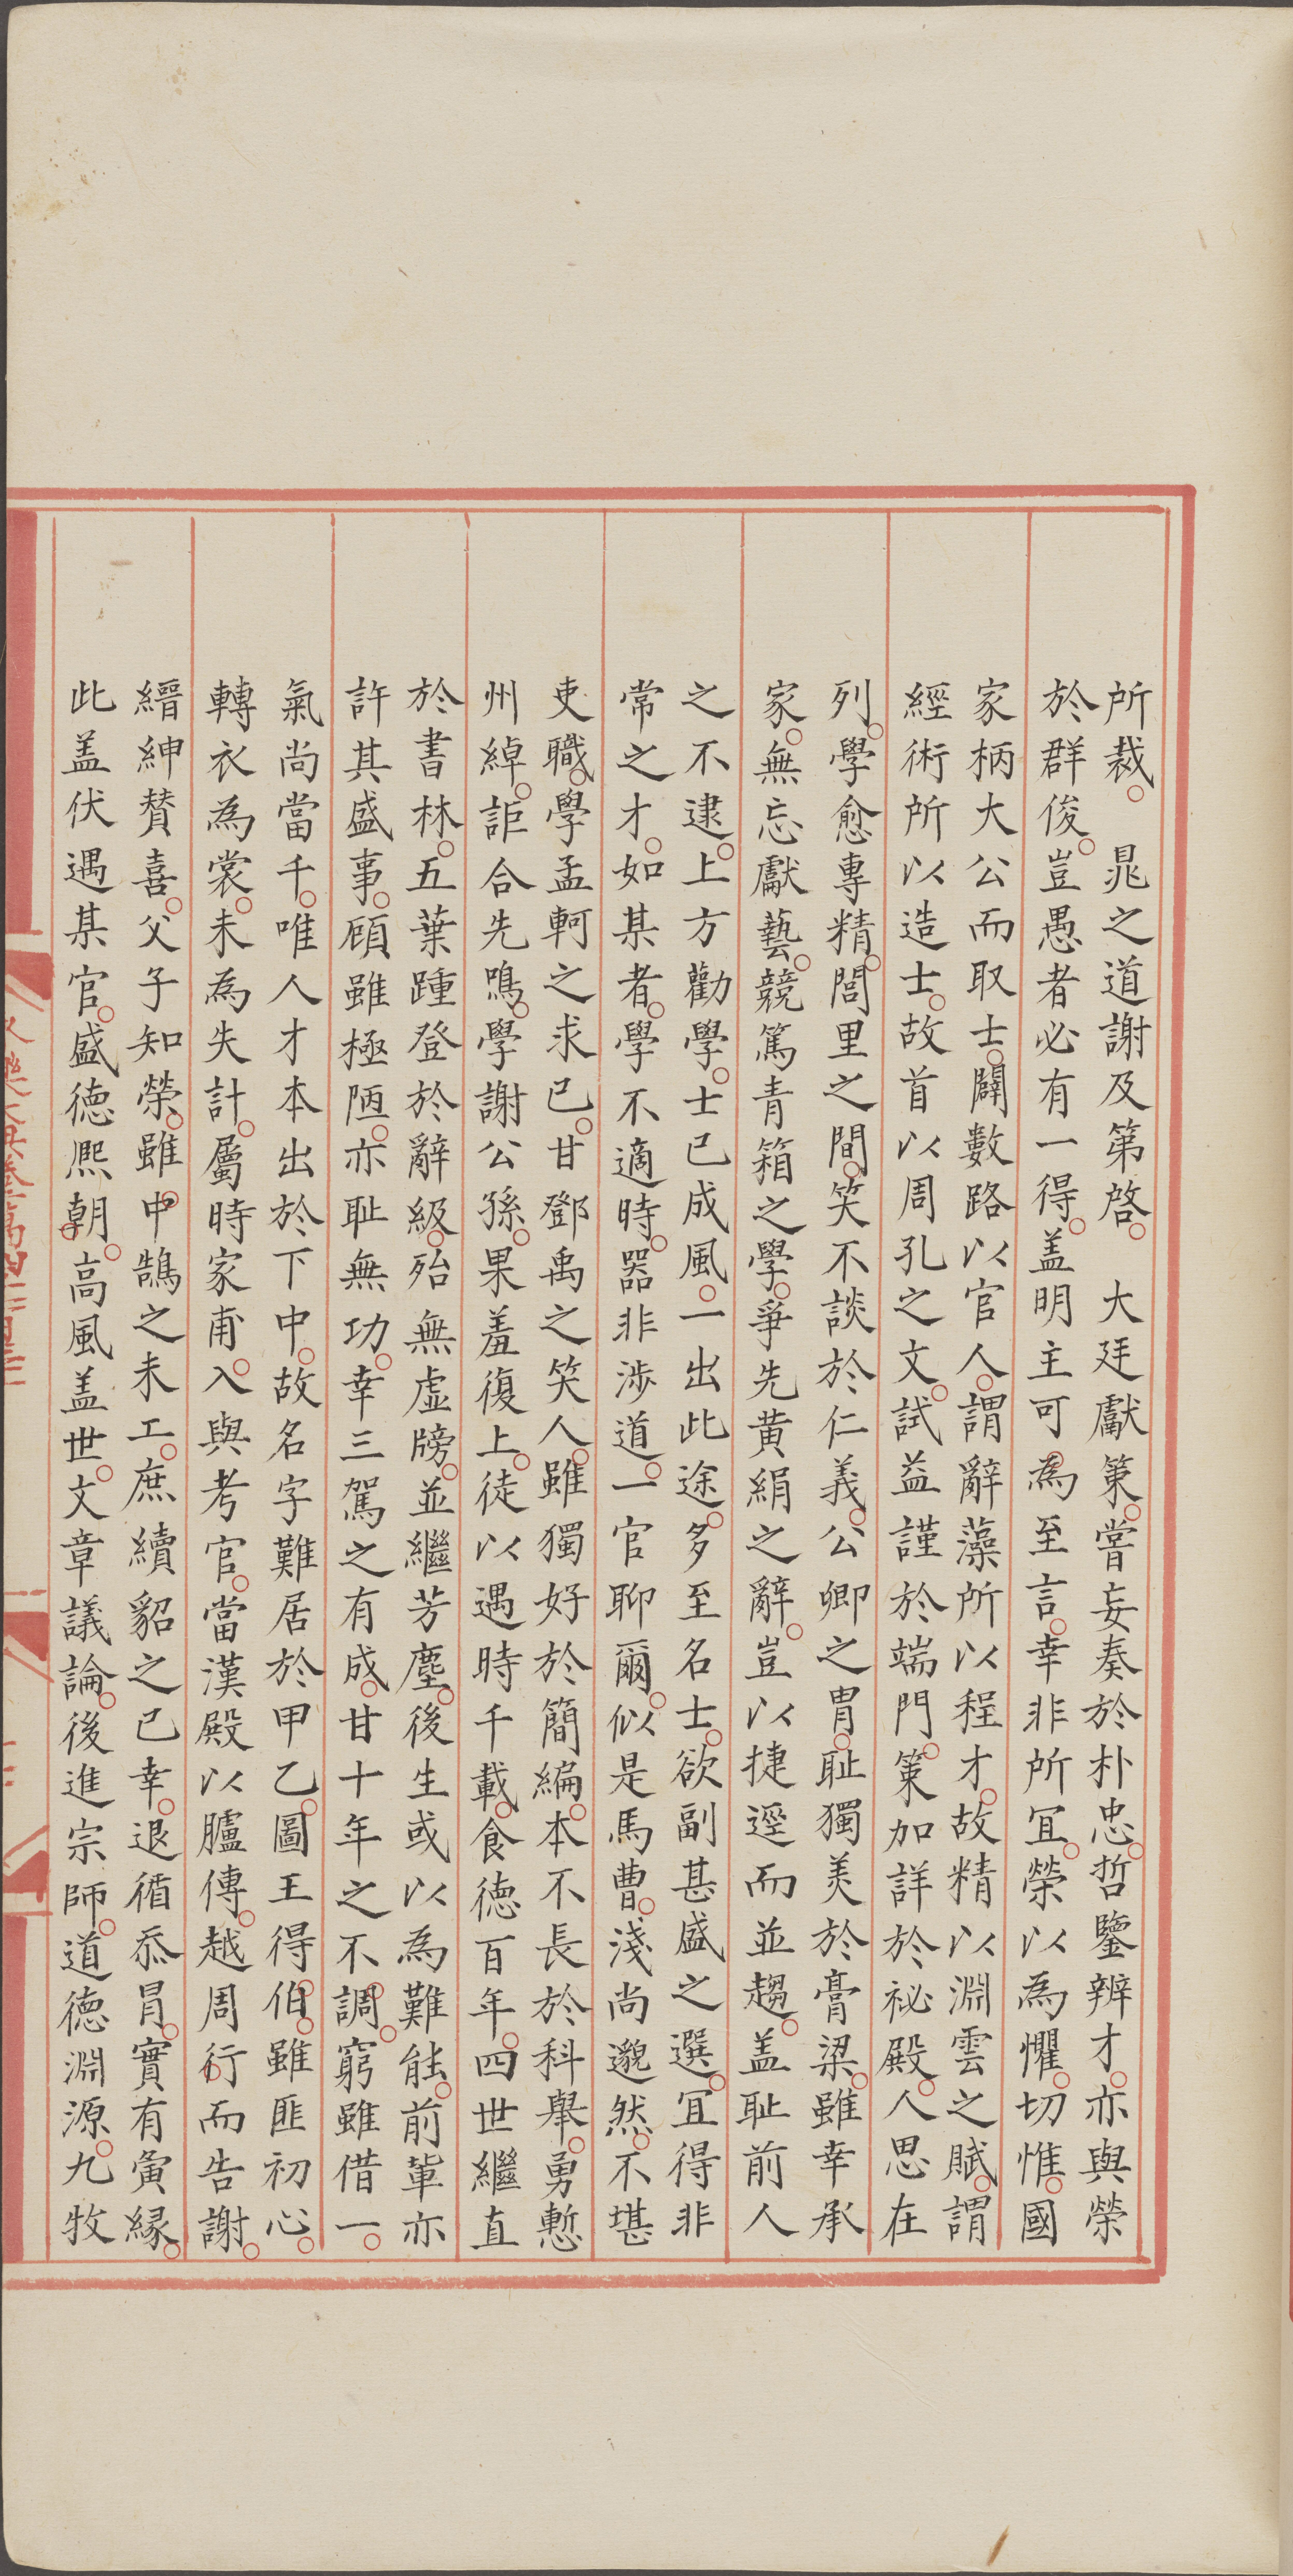 所裁。晁之道謝及第啓。大廷獻策。嘗妄奏於朴忠。哲鑒辨才。亦與榮
於群俊。豈愚者必有一得。盖明主可為至言。幸非所冝。榮以為懼。切惟。國
家柄大公而取士。闢數路以官人。謂辭藻所以程才。故精以淵雲之賦。謂
經術所以造士。故首以周孔之文。試益謹於端門。策加詳於祕殿。人思在
列。學愈專精。閭里之間。笑不談於仁義。公卿之胄。耻獨羙於膏梁。雖幸承
家。無忘獻藝。競篤青箱之學。爭先黄絹之辭。豈以捷逕而並趨。盖耻前人
之不逮。上方勸學。士已成風。一出此途。多至名士。欲副甚盛之選。冝得非
常之才。如某者。學不適時。器非涉道。一官聊爾。似是馬曹。淺尚邈然。不堪
吏職。學孟軻之求已。甘鄧禹之笑人。雖獨好於簡編。本不長於科舉。勇慙
州綽。詎合先鳴。學謝公孫。果羞復上。徒以遇時千載。食徳百年。四世繼直
於書林。五葉踵登於辭級。殆無虛牓。並繼芳塵。後生或以為難能。前軰亦
許其盛事。顧雖極陋。亦耻無功。幸三駕之有成。甘十年之不調。窮雖借一。
氣尚當千。唯人才本出於下中。故名字難居於甲乙。圖王得伯。雖匪初心。
轉衣為裳。未為失計。屬時家甫。入與考官。當漢殿以臚傳。越周行而告謝。
縉紳賛喜。父子知榮。雖中鵠之未工。庶續貂之已幸。退循忝冐。實有夤縁。
此盖伏遇某官。盛徳熈朝。高風盖世。文章議論。後進宗師。道徳淵源。九牧